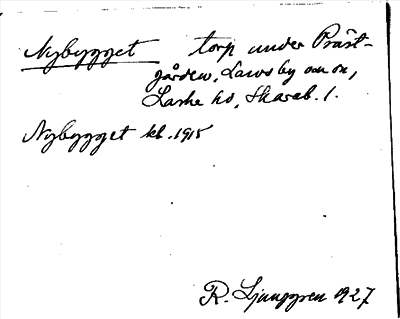 Nybygget torp under Präst-
gården, Lavsby socken,
Laske hd, Skarab. l.
Nybygget kb. 1915
R. Ljunggren 1927